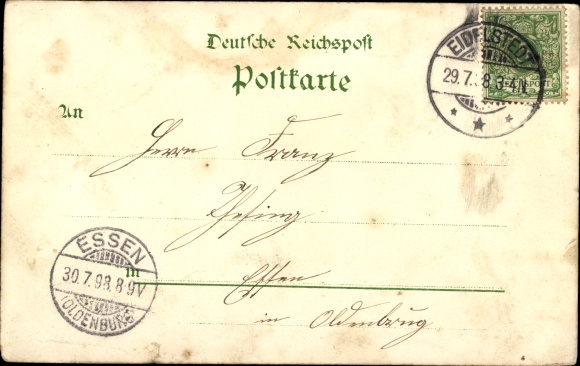 Deutsche Reichspost
Postkarte
EIDELSTEDT
29.7. 8 3-4N
REICHSPOST
An
Herrn Franz
Thesing
ESSEN
30.7.98.8-9V
(OLDENBURG)
in
Essen
in Oldenbrug